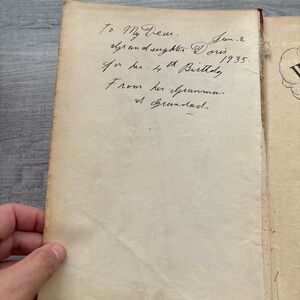 To My Dear.
Jan. 2
Grandaughter Doris
1935.
for her 4th Birthday
From her Granma
& Grandad